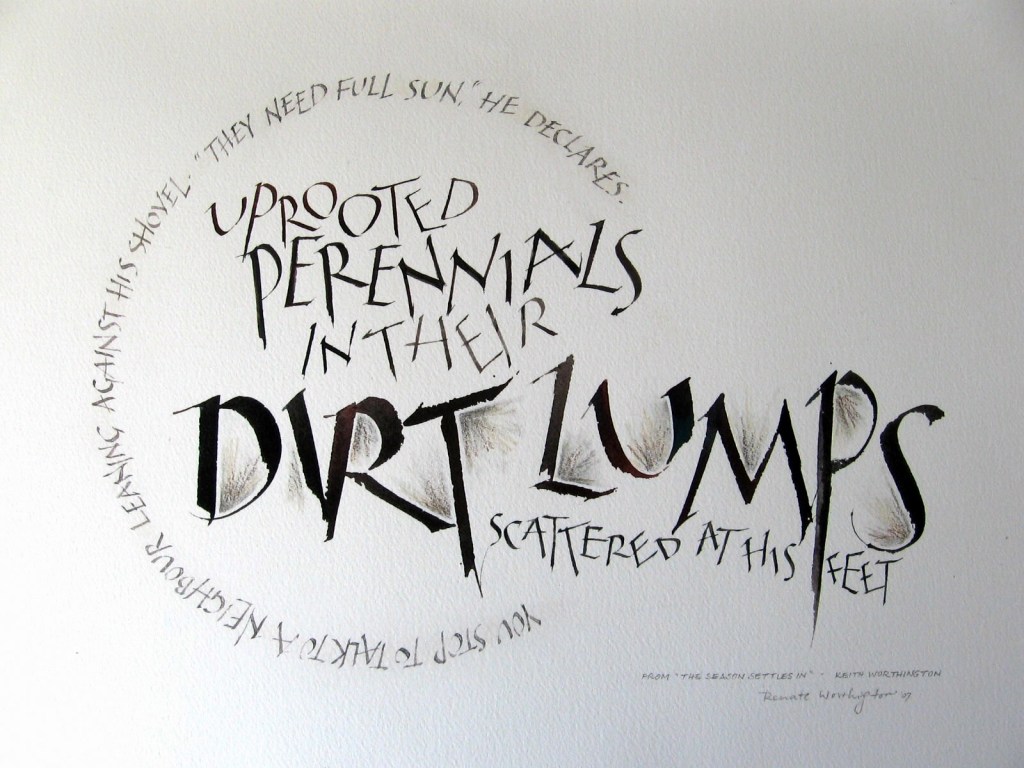 YOU STOP TO TALK TO A NEIGHBOUR LEANING AGAINST HIS SHOVEL. "THEY NEED FULL SUN," HE DECLARES.
UPROOTED
PERENNIALS
IN THEIR
DIRT LUMPS
SCATTERED AT HIS FEET
FROM "THE SEASON SETTLES IN" - KEITH WORTHINGTON
Renate Worthington '07